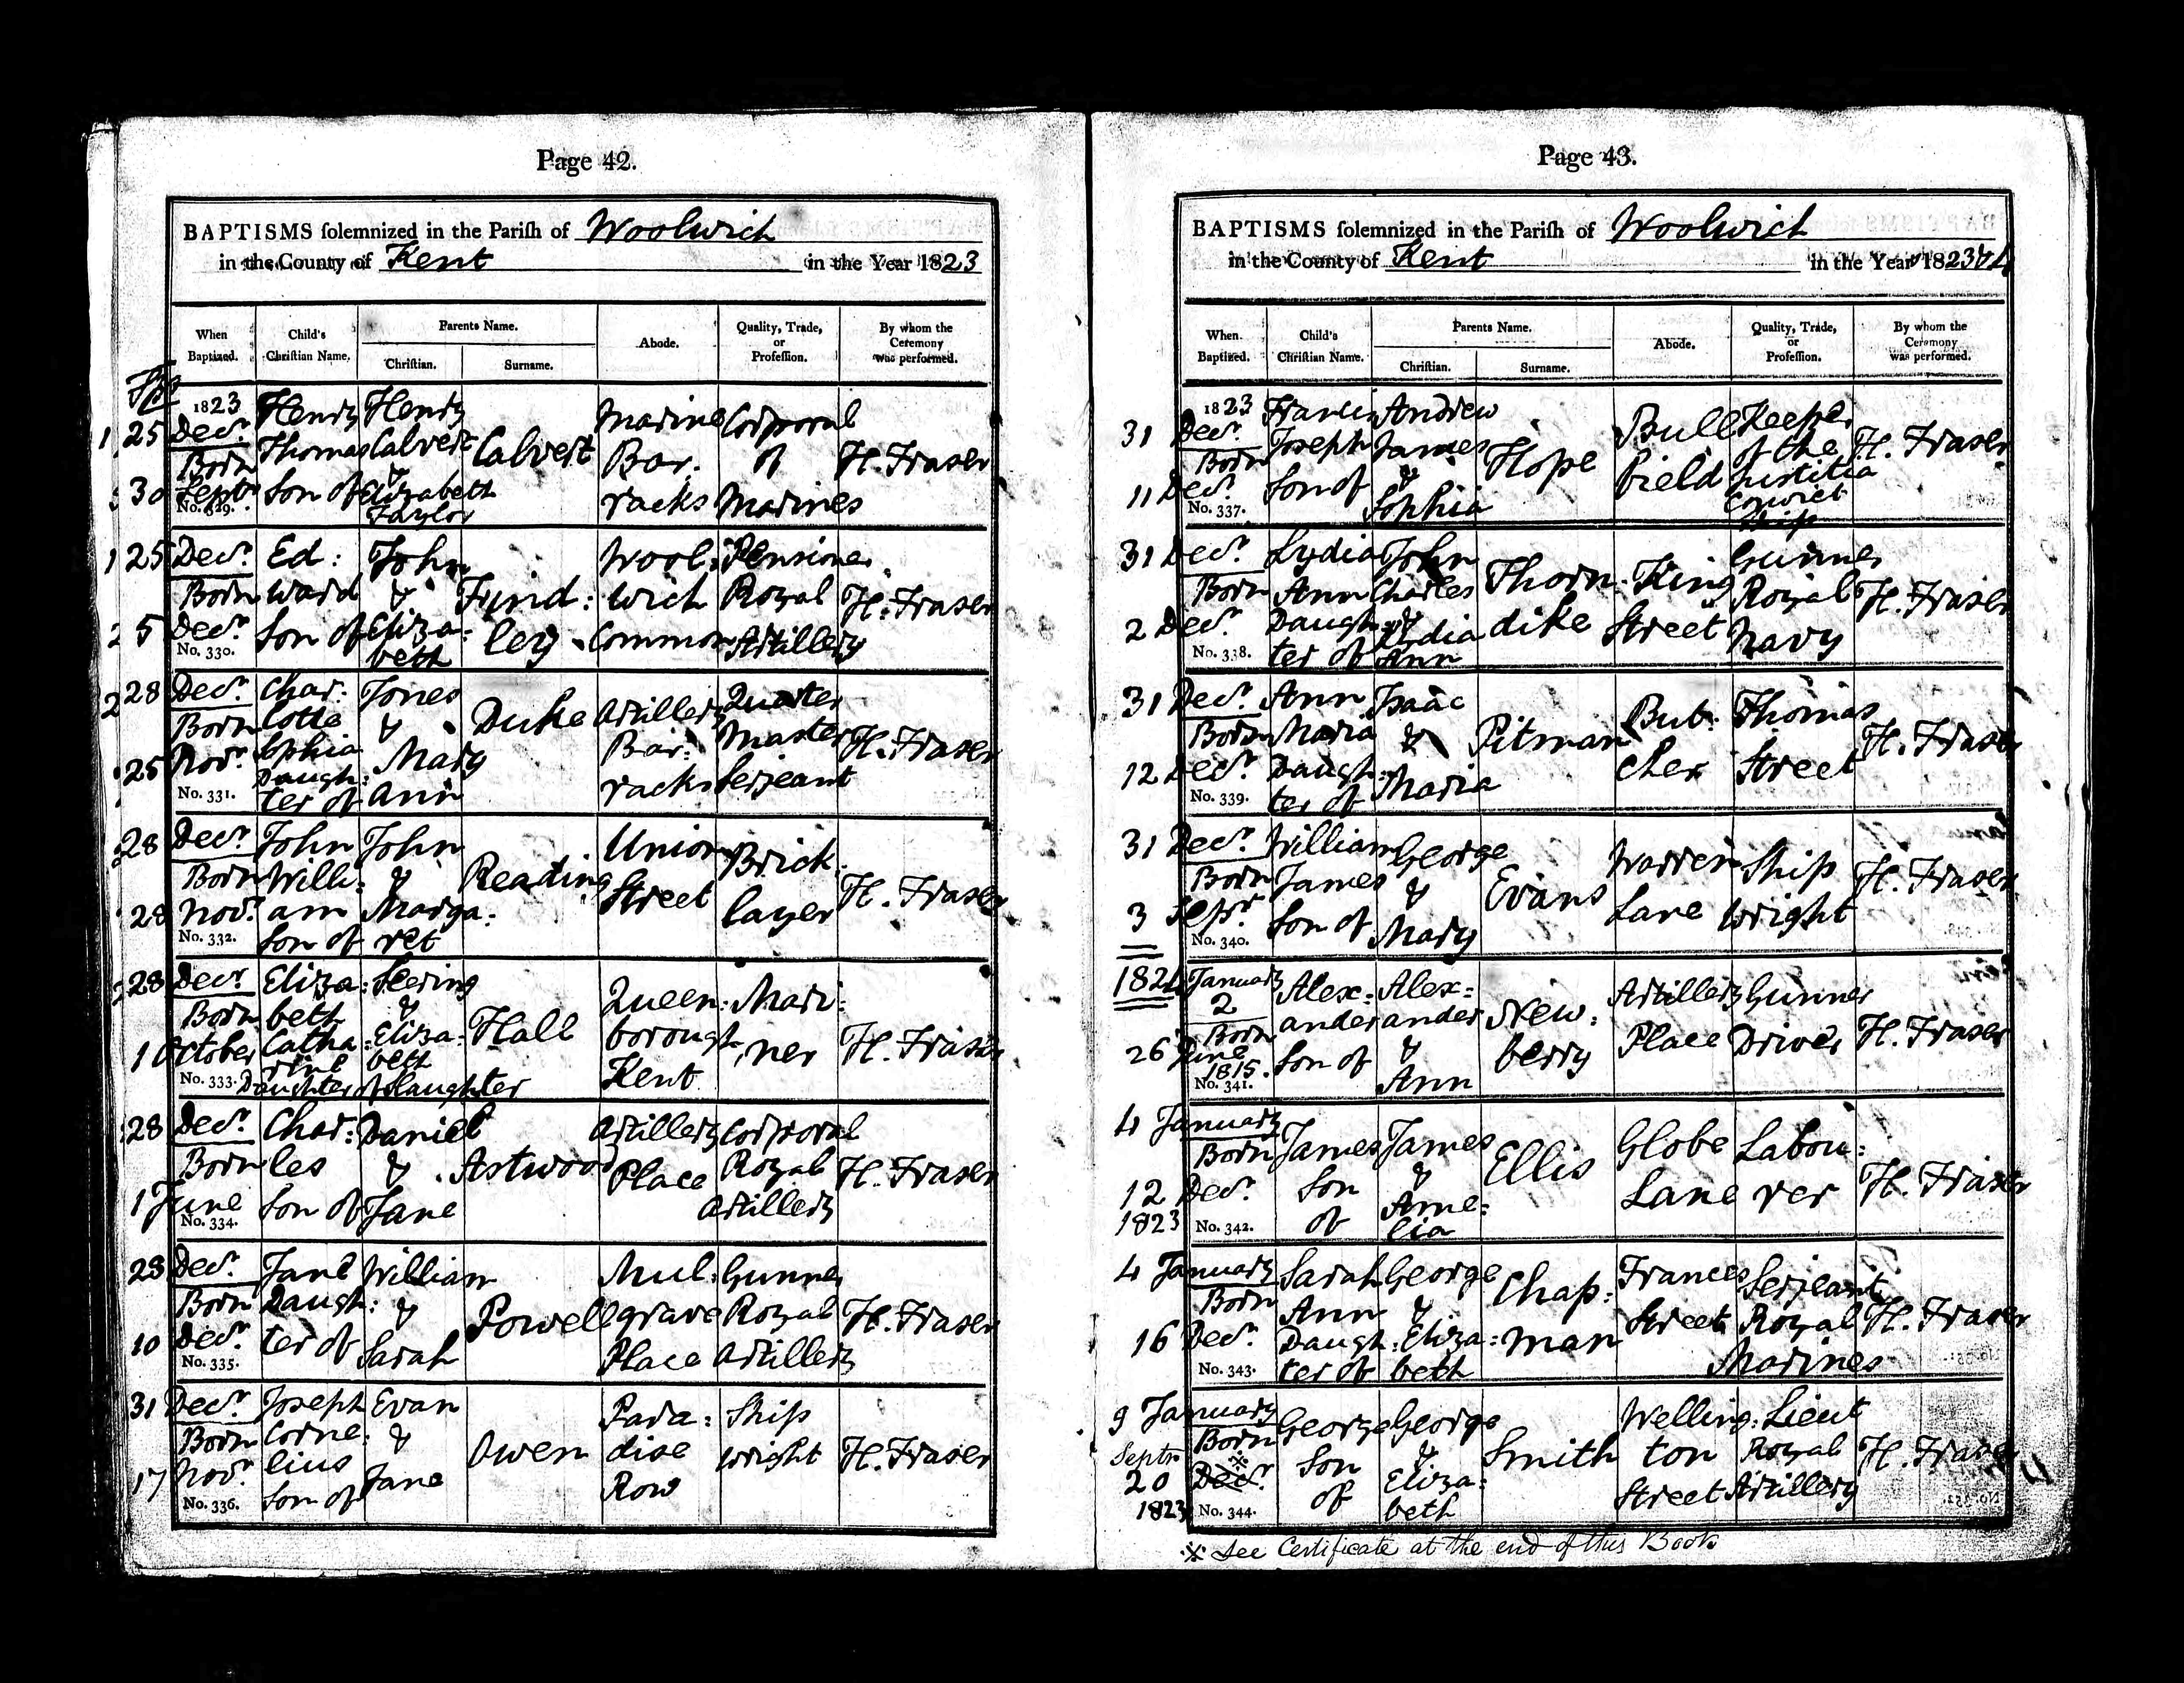 Page 42.
BAPTISMS solemnized in the Parish of Woolwich
in the County of Kent in the Year 1823
When Baptized.
Child's Christian Name.
Parents Name.
Christian.
Surname.
Abode.
Quality, Trade, or Profession.
By whom the Ceremony was performed.
1823
25 Decr. Born 30 Septr.
No. 329.
Henry Thomas Son of
Henry Calvert & Elizabeth Taylor
Calvert
Marine Barracks
Corporal of Marines
H. Fraser
25 Decr. Born 5 Decr.
No. 330.
Ed: ward Son of
John & Eliza: beth
Find: ley
Wool: wich Common
Pensioner Royal Artillery
H. Fraser
28 Decr. Born 25 Novr.
No. 331.
Char: lotte Sophia Daugh: ter of
Jones & Mary Ann
Duke
Artillery Bar: racks
Quarter Master Serjeant
H. Fraser
28 Decr. Born 28 Novr.
No. 332.
John Willi: am Son of
John & Marga: ret
Reading
Union Street
Brick: layer
H. Fraser
28 Decr. Born 1 October
No. 333.
Eliza: beth Catha: rine Daughter of
& Eliza: beth Slaughter
Hall
Queen: borough Kent
Mari: ner
H. Fraser
28 Decr. Born 1 June
No. 334.
Char: les Son of
Daniel & Jane
Astwood
Artillery Place
Corporal Royal Artillery
H. Fraser
28 Decr. Born 10 Decr.
No. 335.
Jane Daugh: ter of
William & Sarah
Powell
Mul: grave Place
Gunner Royal Artillery
H. Fraser
31 Decr. Born 17 Novr.
No. 336.
Joseph Corne: lius Son of
Evan & Jane
Owen
Para: dise Row
Ship wright
H. Fraser
Page 43.
BAPTISMS solemnized in the Parish of Woolwich
in the County of Kent in the Year 1823 & 4
When Baptized.
Child's Christian Name.
Parents Name.
Christian.
Surname.
Abode.
Quality, Trade, or Profession.
By whom the Ceremony was performed.
1823
31 Decr. Born 11 Decr.
No. 337.
Francis Joseph Son of
Andrew James & Sophia
Hope
Bull Field
Keeper of the Justitia Convict Ship
H. Fraser
31 Decr. Born 2 Decr.
No. 338.
Lydia Ann Daugh: ter of
John Charles & Lydia Ann
Thorn: dike
King Street
Gunner Royal Navy
H. Fraser
31 Decr. Born 12 Decr.
No. 339.
Ann Maria Daugh: ter of
Isaac & Maria
Pitman
But: cher
Thomas Street
H. Fraser
31 Decr. Born 3 Sepr.
No. 340.
William James Son of
George & Mary
Evans
Warren Lane
Ship wright
H. Fraser
1824 January 2 Born 26 June 1815.
No. 341.
Alex: ander Son of
Alex: ander & Ann
New: berry
Artillery Place
Gunner Driver
H. Fraser
4 January Born 12 Decr. 1823
No. 342.
James Son of
James & Ame: lia
Ellis
Globe Lane
Labou: rer
H. Fraser
4 January Born 16 Decr.
No. 343.
Sarah Ann Daugh: ter of
George & Eliza: beth
Chap: man
Frances Street
Serjeant Royal Marines
H. Fraser
9 January Born Septr. ※ 20 Decr. 1823
No. 344.
George Son of
George & Eliza: beth
Smith
Welling: ton Street
Lieut Royal Artillery
H. Fraser
※ See Certificate at the end of this Book